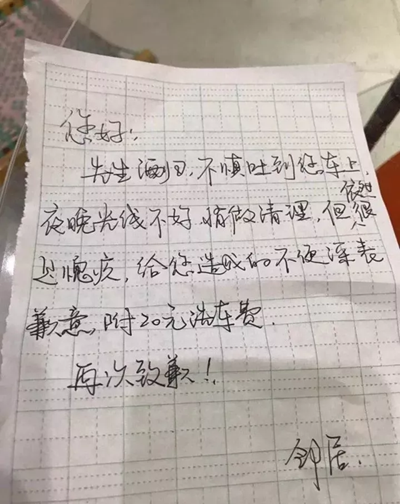 您好:
先生酒归,不慎吐到您车上,
夜晚光线不好稍做清理,但依然很
是愧疚,给您造成的不便深表
歉意,附20元洗车费.
再次致歉!
邻居.